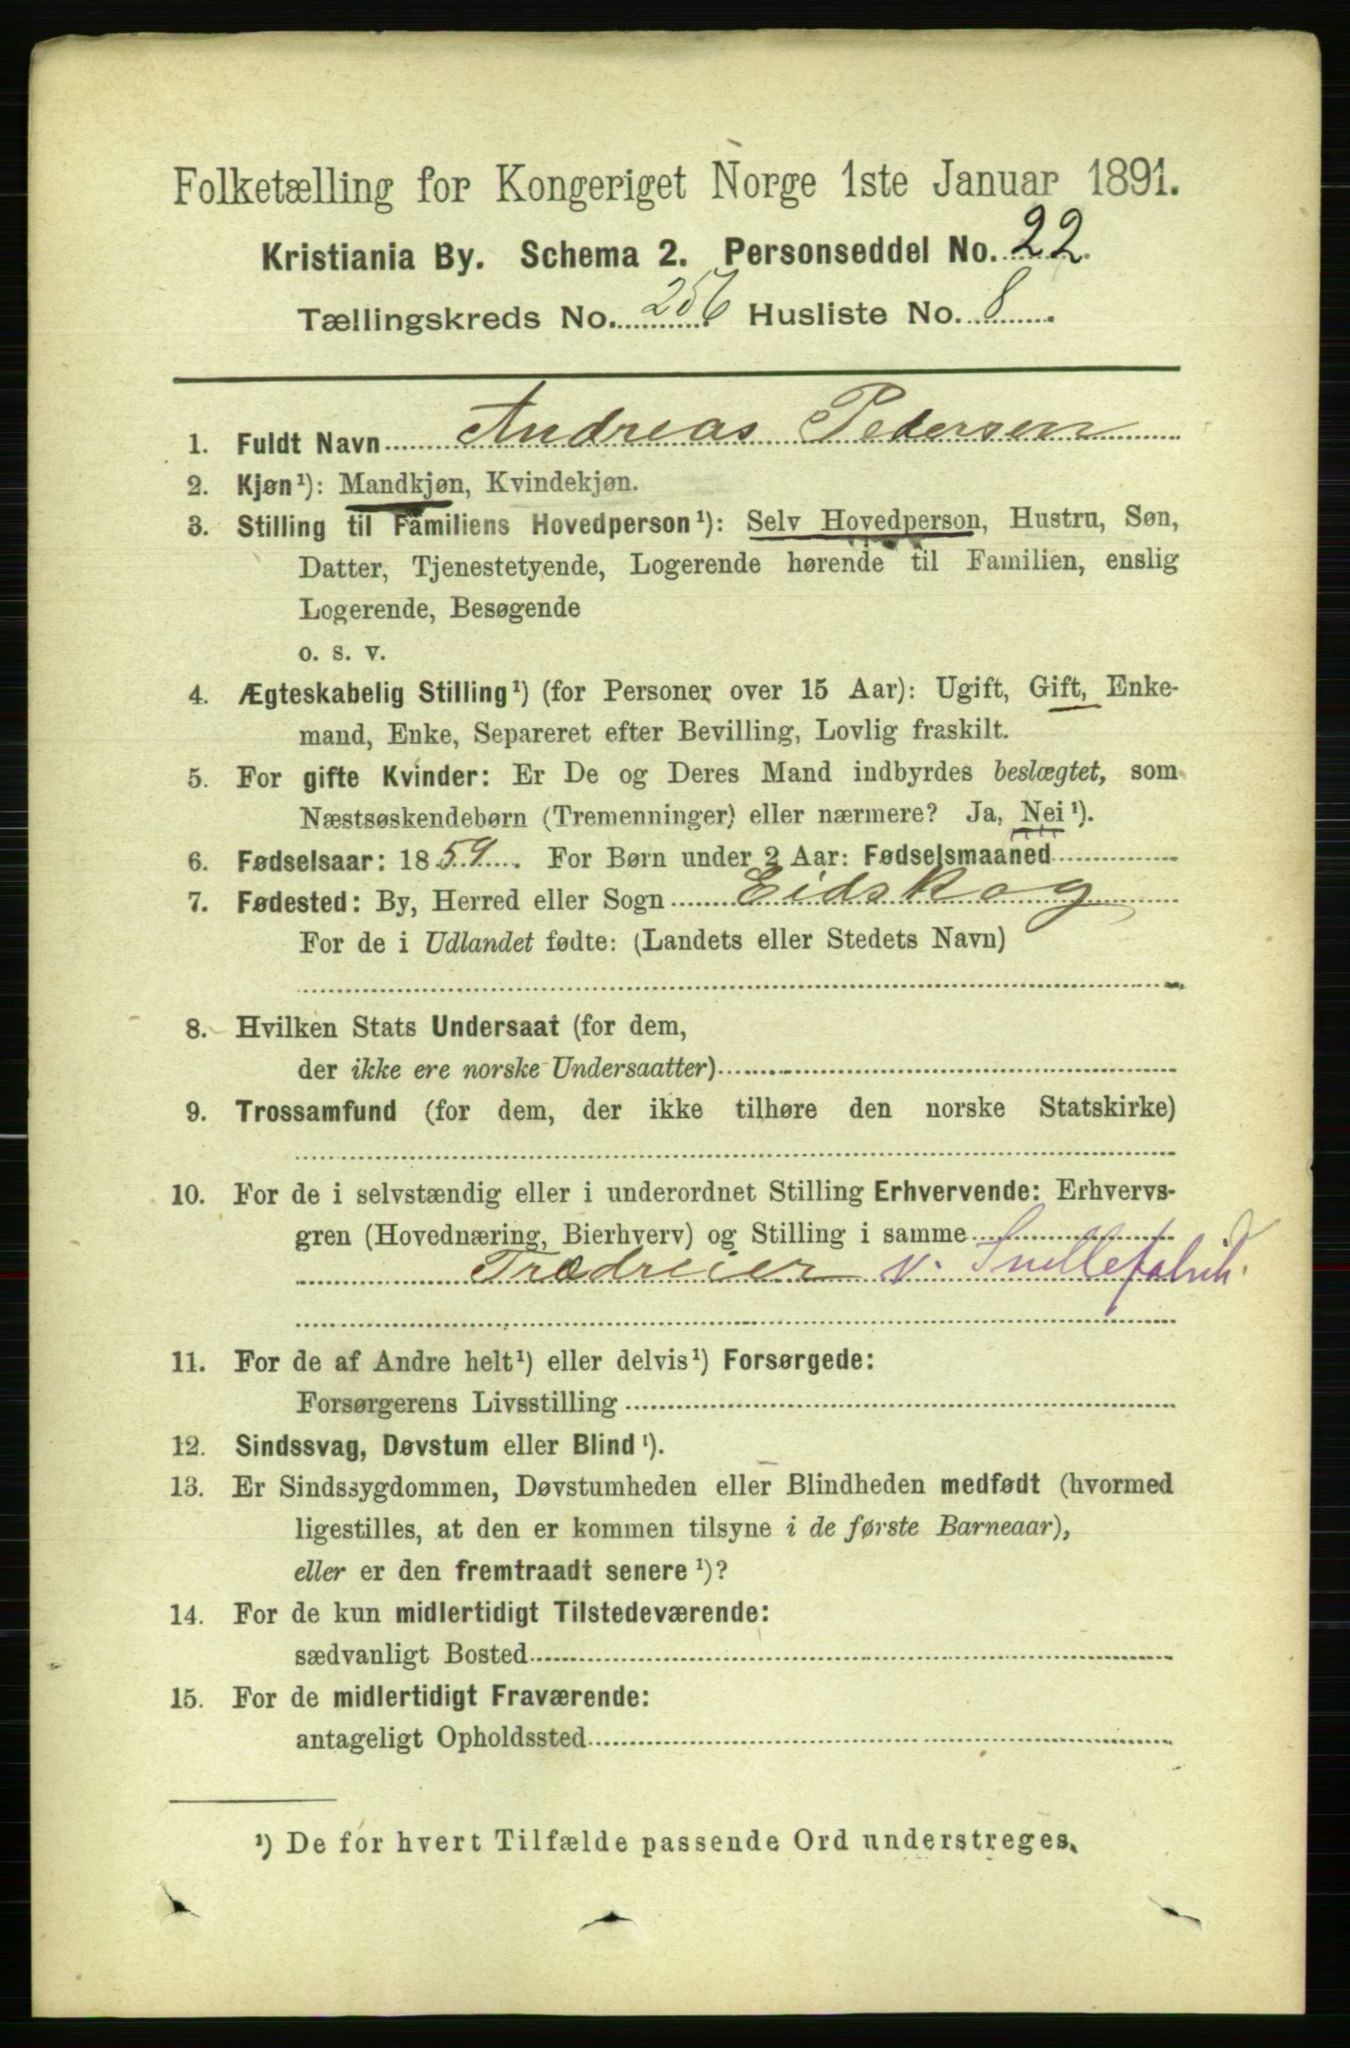 Folketælling for Kongeriget Norge 1ste Januar 1891.
Kristiania By. Schema 2. Personseddel No. 22.
Tællingskreds No. 256 Husliste No. 8
1. Fuldt Navn Andreas Pedersen
2. Kjøn¹): Mandkjøn, Kvindekjøn.
3. Stilling til Familiens Hovedperson¹): Selv Hovedperson, Hustru, Søn,
Datter, Tjenestetyende, Logerende hørende til Familien, enslig
Logerende, Besøgende
o. s. v.
4. Ægteskabelig Stilling¹) (for Personer over 15 Aar): Ugift, Gift, Enke-
mand, Enke, Separeret efter Bevilling, Lovlig fraskilt.
5. For gifte Kvinder: Er De og Deres Mand indbyrdes beslægtet, som
Næstsøskendebørn (Tremenninger) eller nærmere? Ja, Nei¹).
6. Fødselsaar: 1859. For Børn under 2 Aar: Fødselsmaaned
7. Fødested: By, Herred eller Sogn Eidskog
For de i Udlandet fødte: (Landets eller Stedets Navn)
8. Hvilken Stats Undersaat (for dem,
der ikke ere norske Undersaatter)
9. Trossamfund (for dem, der ikke tilhøre den norske Statskirke)
10. For de i selvstændig eller i underordnet Stilling Erhvervende: Erhvervs-
gren (Hovednæring, Bierhverv) og Stilling i samme
Trædreier v. Snellefabrik.
11. For de af Andre helt¹) eller delvis¹) Forsørgede:
Forsørgerens Livsstilling
12. Sindssvag, Døvstum eller Blind¹).
13. Er Sindssygdommen, Døvstumheden eller Blindheden medfødt (hvormed
ligestilles, at den er kommen tilsyne i de første Barneaar),
eller er den fremtraadt senere¹)?
14. For de kun midlertidigt Tilstedeværende:
sædvanligt Bosted
15. For de midlertidigt Fraværende:
antageligt Opholdssted
¹) De for hvert Tilfælde passende Ord understreges.